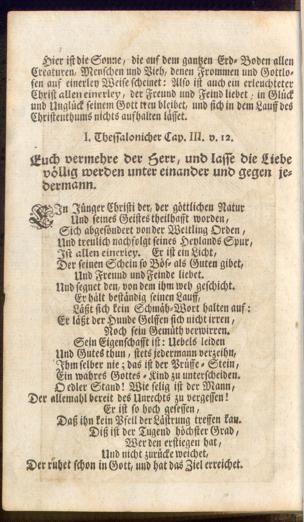 Hier ist die Sonne, die auf dem gantzen Erd-Boden allen
Creaturen, Menschen und Vieh, denen Frommen und Gottlo-
sen auf einerley Weise scheinet: Also ist auch ein erleuchteter
Christ allen einerley, der Freund und Feind liebet, in Glück
und Unglück seinem Gott treu bleibet, und sich in dem Lauff des
Christenthums nichts aufhalten lässet.
I. Thessalonicher Cap. III. v. 12.
Euch vermehre der Herr, und lasse die Liebe
völlig werden unter einander und gegen je-
dermann.
EIn Jünger Christi der, der göttlichen Natur
Und seines Geistes theilhafft worden,
Sich abgesondert von der Weltling Orden,
Und treulich nachfolgt seines Heylands Spur,
Ist allen einerley. Er ist ein Licht,
Der seinen Schein so Bös- als Guten gibet,
Und Freund und Feinde liebet.
Und segnet den, von dem ihm weh geschicht.
Er hält beständig seinen Lauff,
Läßt sich kein Schmäh-Wort halten auf:
Er läßt der Hunde Gelffen sich nicht irren,
Noch sein Gemüth verwirren.
Sein Eigenschafft ist: Uebels leiden
Und Gutes thun, stets jedermann verzeihn,
Ihm selber nie; das ist der Prüffe-Stein,
Ein wahres Gottes-Kind zu unterscheiden.
O edler Stand! Wie selig ist der Mann,
Der allemahl bereit des Unrechts zu vergessen!
Er ist so hoch gesessen,
Daß ihn kein Pfeil der Lästrung treffen kan.
Diß ist der Tugend höchster Grad,
Wer den erstiegen hat,
Und nicht zurücke weichet,
Der ruhet schon in Gott, und hat das Ziel erreichet.